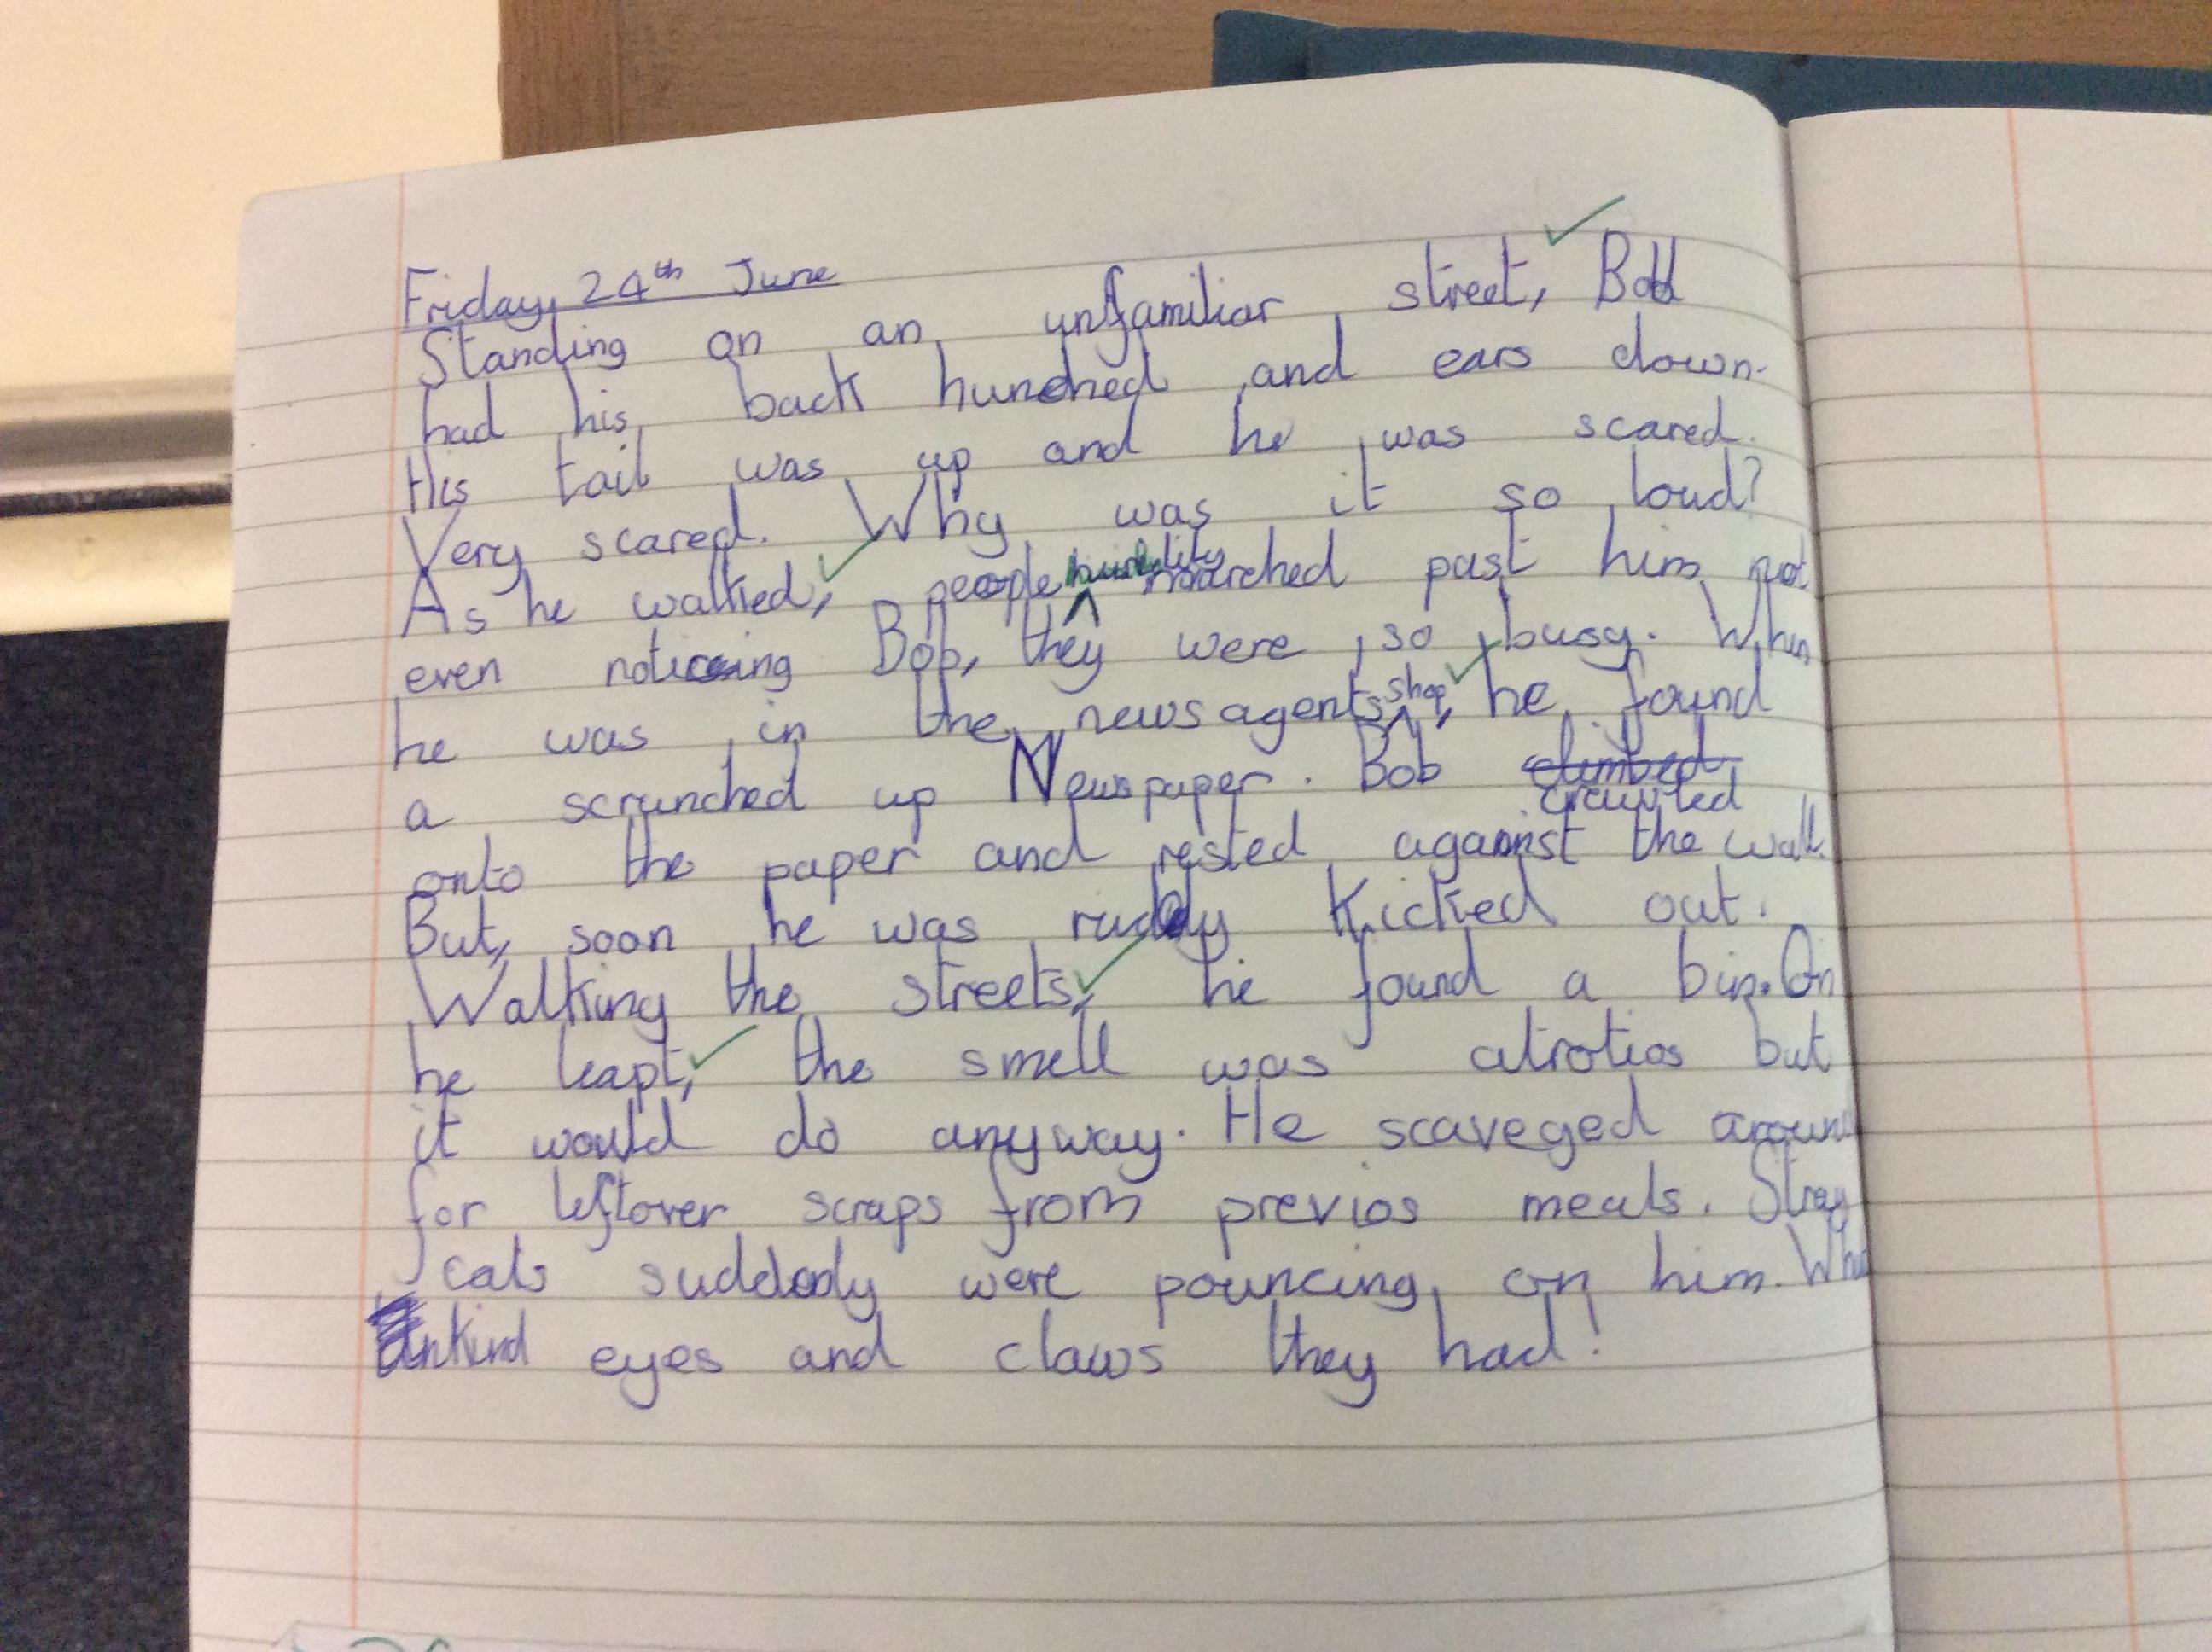 Friday 24th June
Standing on an unfamiliar street, Bob
had his back hunched and ears down.
His tail was up and he was scared.
Very scared. Why was it so loud?
As he walked, people marched past him not
even noticing Bob, they were so busy. When
he was in the newsagents shop, he found
a scrunched up Newspaper. Bob climbed crawled
onto the paper and rested against the wall.
But, soon he was rudely kicked out.
Walking the streets, he found a bin. On
he leapt, the smell was atrotios but
it would do anyway. He scaveged around
for leftover scraps from previos meals. Stray
cats suddenly were pouncing on him.
unkind eyes and claws they had!